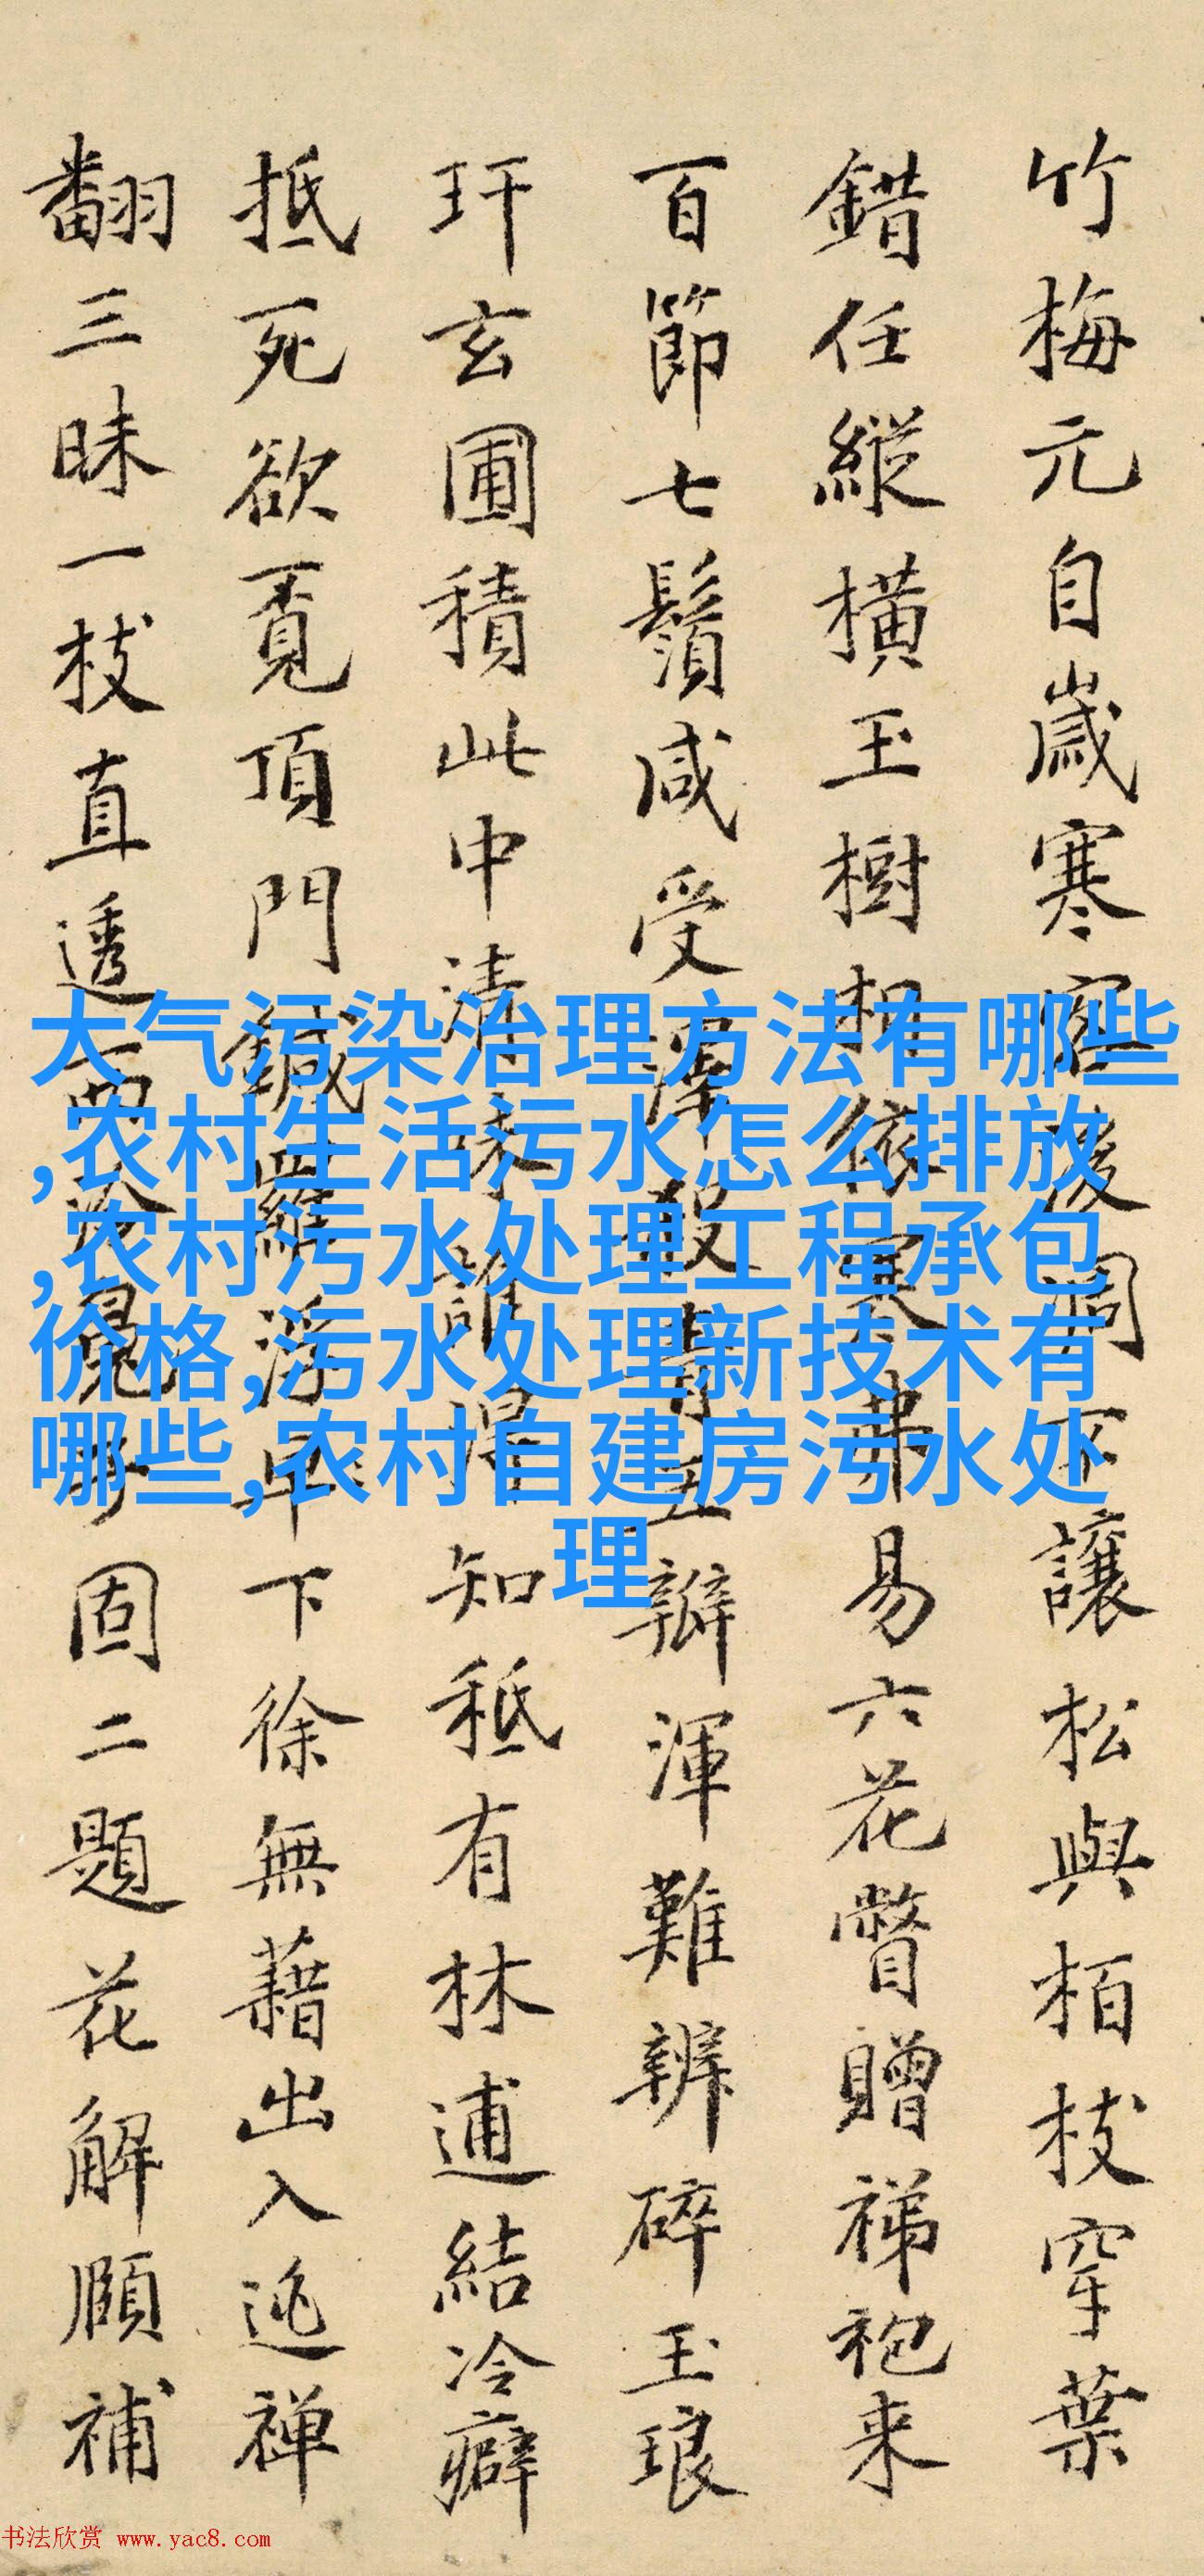 竹梅元自歲寒後凋不讓松與栢枝穿葉
錯任縱橫玉樹相依寒弗易六花瞥贈祶袍来
百節七鬚咸受澤殺青五瓣渾難辨碎玉琅
玕玄圃積此中清味誰得知秪有林逋結冷癖
抵死欲覔頂門鍼羅浮早下徐無藉出入逃禪
翻三昧一枝直透西冷固二題花解頤補
大气污染治理方法有哪些
,农村生活污水怎么排放
,农村污水处理工程承包
价格,污水处理新技术有
哪些,农村自建房污水处
理
书法欣赏 www.yac8.com